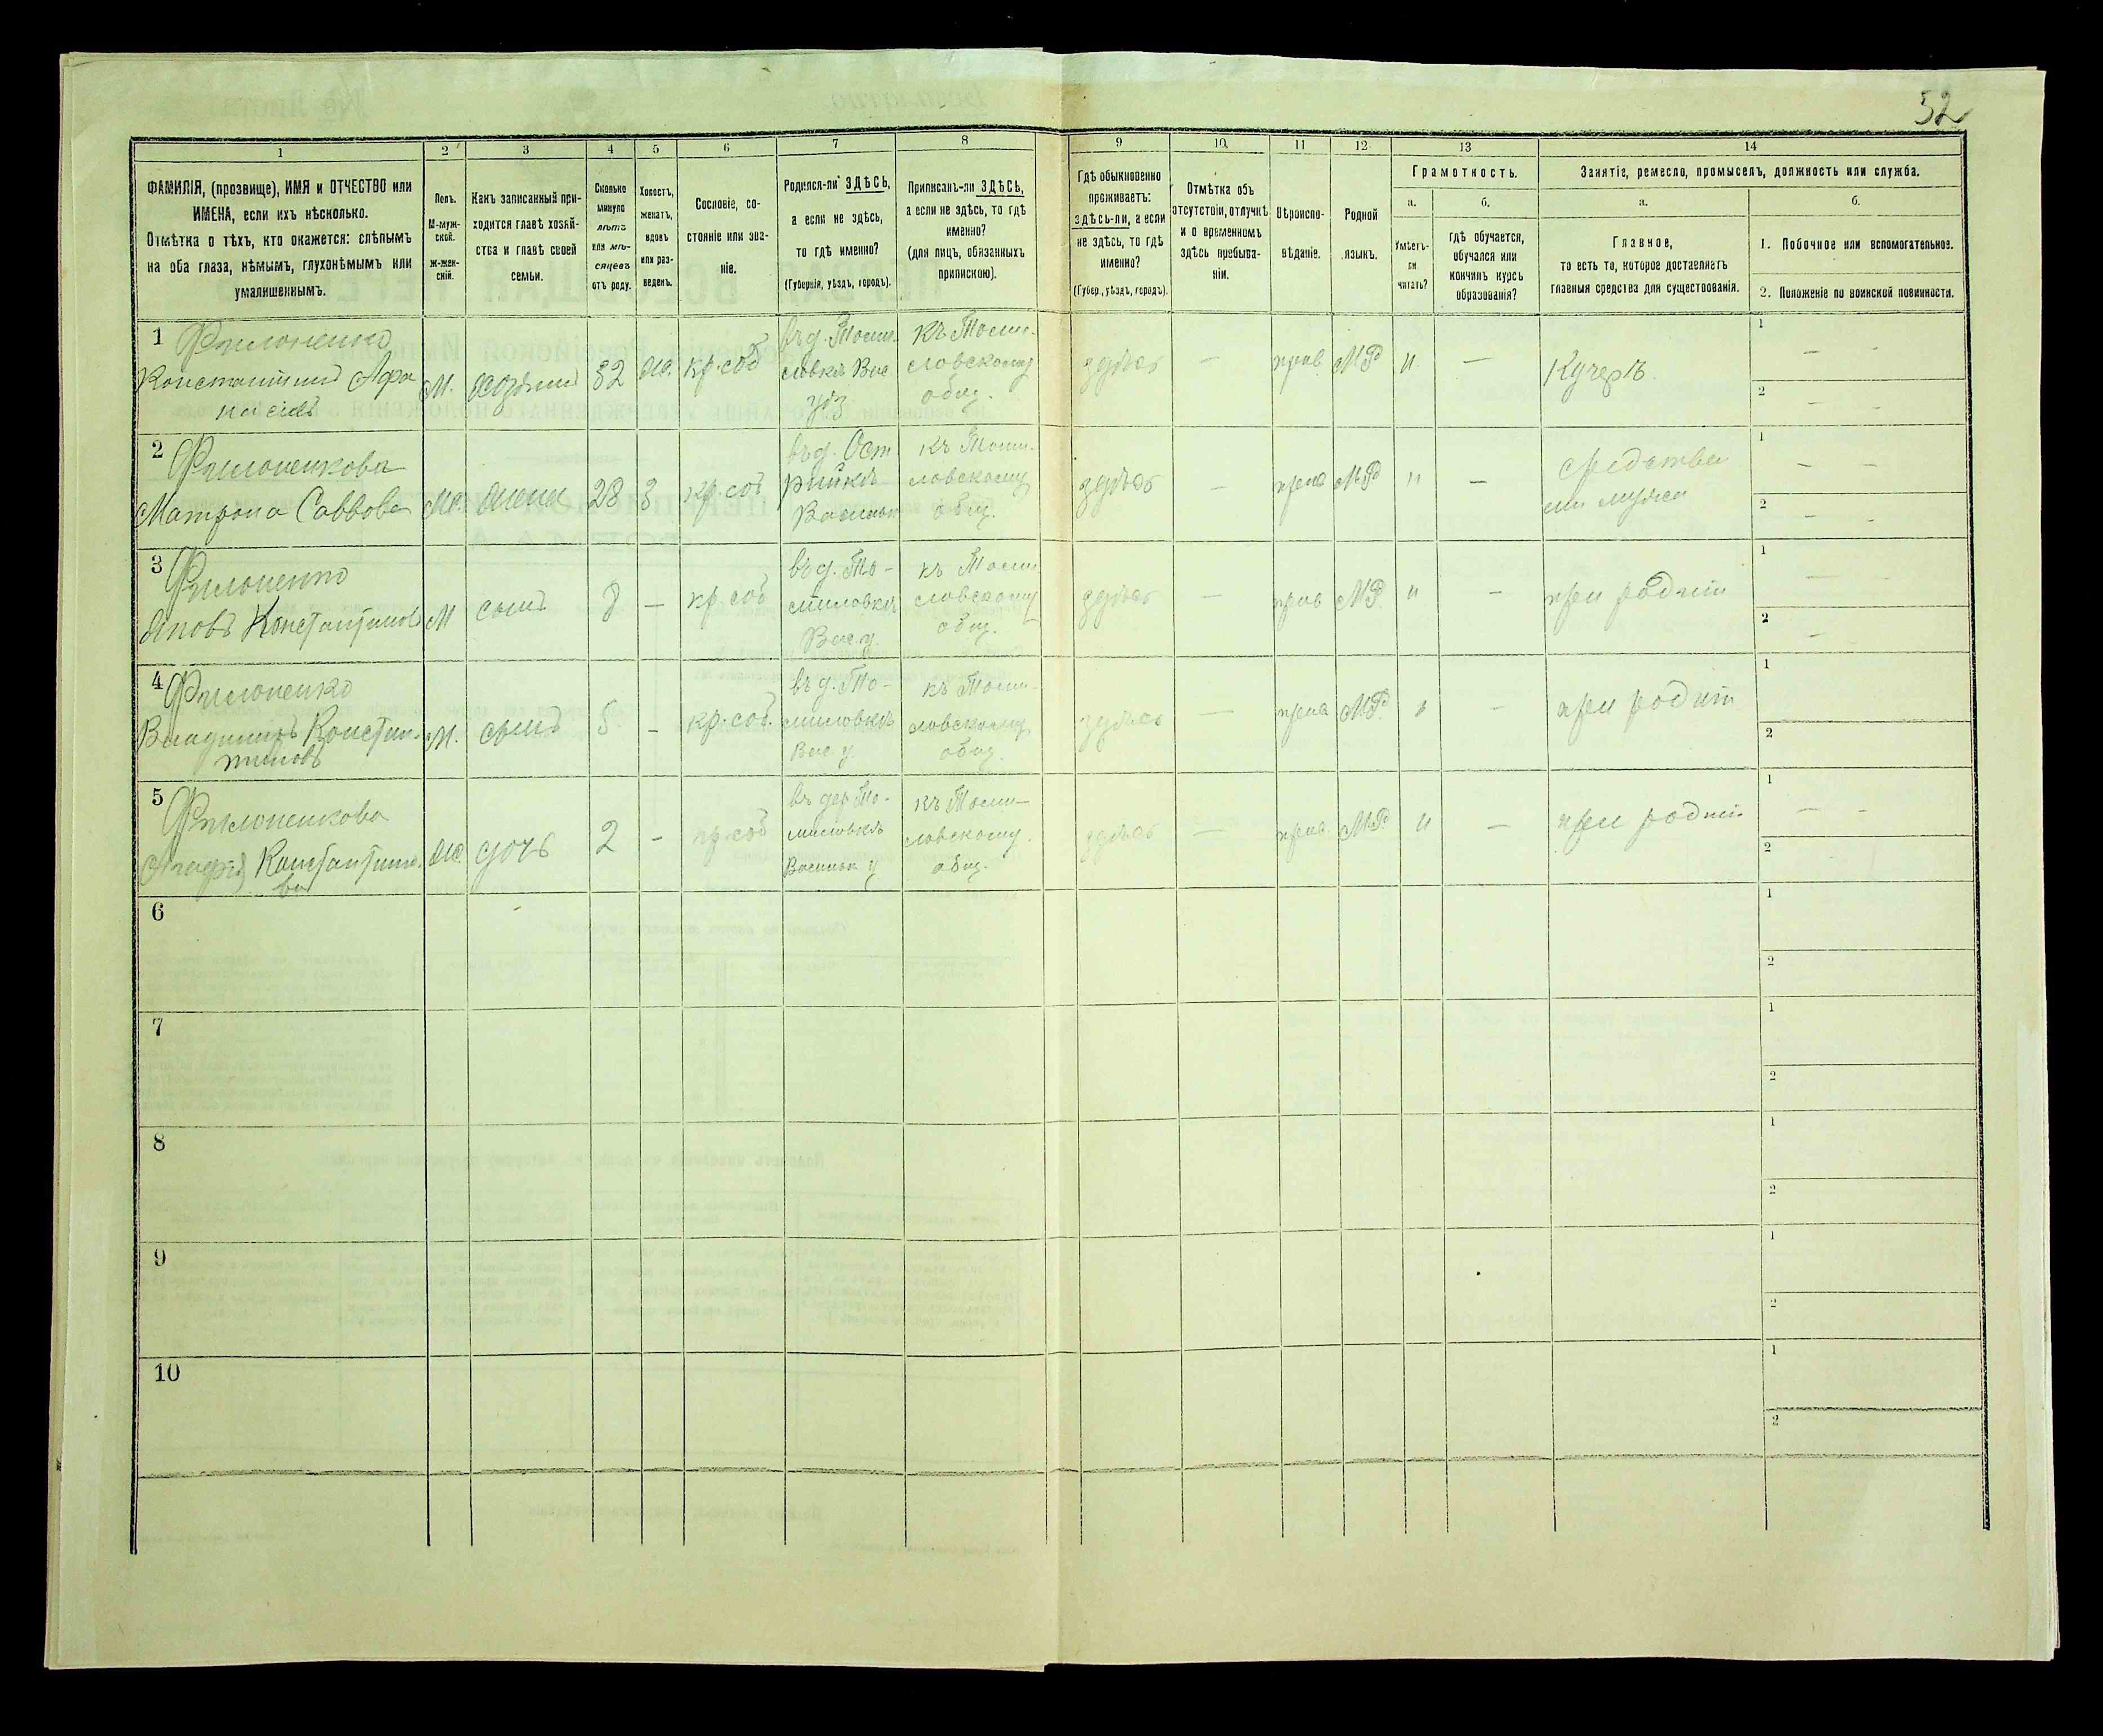 52
1 2 3 4 5 6 7 8 9 10 11 12 13 14
ФАМИЛІЯ, (прозвище), ИМЯ и ОТЧЕСТВО или
ИМЕНА, если ихъ нѣсколько.
Отмѣтка о тѣхъ, кто окажется: слѣпымъ
на оба глаза, нѣмымъ, глухонѣмымъ или
умалишеннымъ.
Полъ.
М-муж-
ской.
Ж-жен-
скій.
Какъ записанный при-
ходится главѣ хозяй-
ства и главѣ своей
семьи.
Сколько
минуло
лѣтъ
или мѣ-
сяцевъ
отъ роду.
Холостъ,
женатъ,
вдовъ
или раз-
веденъ.
Сословіе, со-
стояніе или зва-
ніе.
Родился-ли ЗДѢСЬ,
а если не здѣсь,
то гдѣ именно?
(Губернія, уѣздъ, городъ).
Приписанъ-ли ЗДѢСЬ,
а если не здѣсь, то гдѣ
именно?
(для лицъ, обязанныхъ
припискою).
Гдѣ обыкновенно
проживаетъ:
здѣсь-ли, а если
не здѣсь, то гдѣ
именно?
(Губер., уѣздъ, городъ).
Отмѣтка объ
отсутствіи, отлучкѣ
и о временномъ
здѣсь пребыва-
ніи.
Вѣроиспо-
вѣданіе.
Родной
языкъ.
Грамотность.
а.
Умѣетъ-
ли
читать?
б.
гдѣ обучается,
обучался или
кончилъ курсъ
образованія?
Занятіе, ремесло, промыселъ, должность или служба.
а.
Главное,
то есть то, которое доставляетъ
главныя средства для существованія.
б.
1. Побочное или вспомогательное.
2. Положеніе по воинской повинности.
1 Филоненко
Константинъ Афа
насіевъ
М.
хозяинъ
32
ж.
кр. соб
въ д. Томи-
ловкѣ Вас
уѣз
къ Томи-
ловскому
общ.
здѣсь
—
прав
МР
н
—
Кучеръ
1 — —
2 — —
2 Филоненкова
Матрона Саввова
Ж.
жена
28
з
кр. соб
въ д.
Васильк
къ Томи-
ловскому
общ.
здѣсь
—
прав
МР
н
—
средства
мужа
1 — —
2 — —
3 Филоненко
Яковъ Константиновъ
М
сынъ
8
—
кр. соб
въ д. То-
миловкѣ
Вас. у.
къ Томи
ловскому
общ.
здѣсь
—
прав
МР
н
—
при родит
1
2 —
4 Филоненко
Владиміръ Констан-
тиновъ
М.
сынъ
5
—
кр. соб.
въ д. То-
миловкѣ
Вас у
къ Томи-
ловскому
общ.
здѣсь
—
прав
МР
н
—
при родит
1
2
5 Филоненкова
Агафія Константино
ва
Ж.
дочь
2
—
кр. соб
въ дер То-
миловкѣ
Васильк у
къ Томи-
ловскому
общ.
здѣсь
—
прав
МР
н
—
при родит
1 — —
2
6
1
2
7
1
2
8
1
2
9
1
2
10
1
2